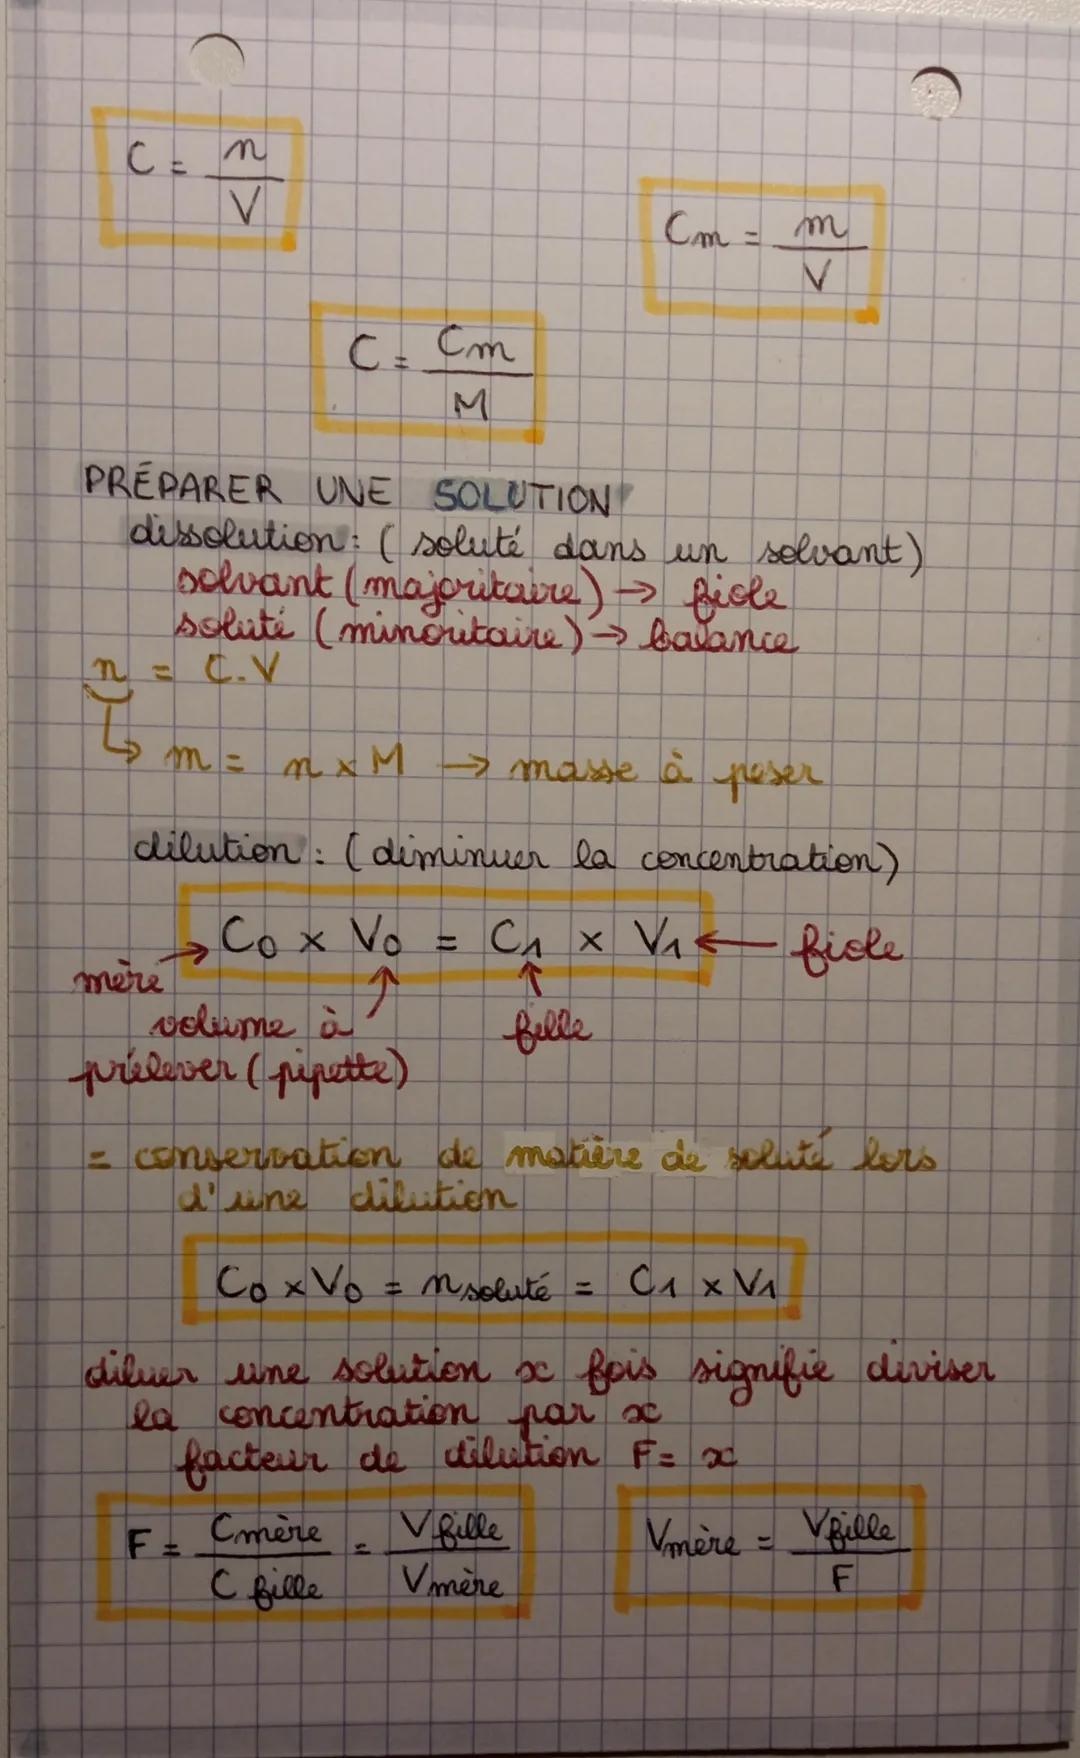 C = n/V
Cm = m/V
C = Cm/M
PRÉPARER UNE SOLUTION
dissolution : ( soluté dans un solvant)
solvant (majoritaire) → fiole
soluté (minoritaire) → balance
n = C.V
↳ m = n x M → masse à peser
dilution : (diminuer la concentration)
C0 x V0 = C1 x V1 ← fiole
mère →
volume à prélever (pipette)
fille
= conservation de matière de soluté lors
d'une dilution
C0 x V0 = n soluté = C1 x V1
diluer une solution x fois signifie diviser
la concentration par x
facteur de dilution F= x
F = Cmère/C fille = V fille/Vmère
Vmère = Vfille/F